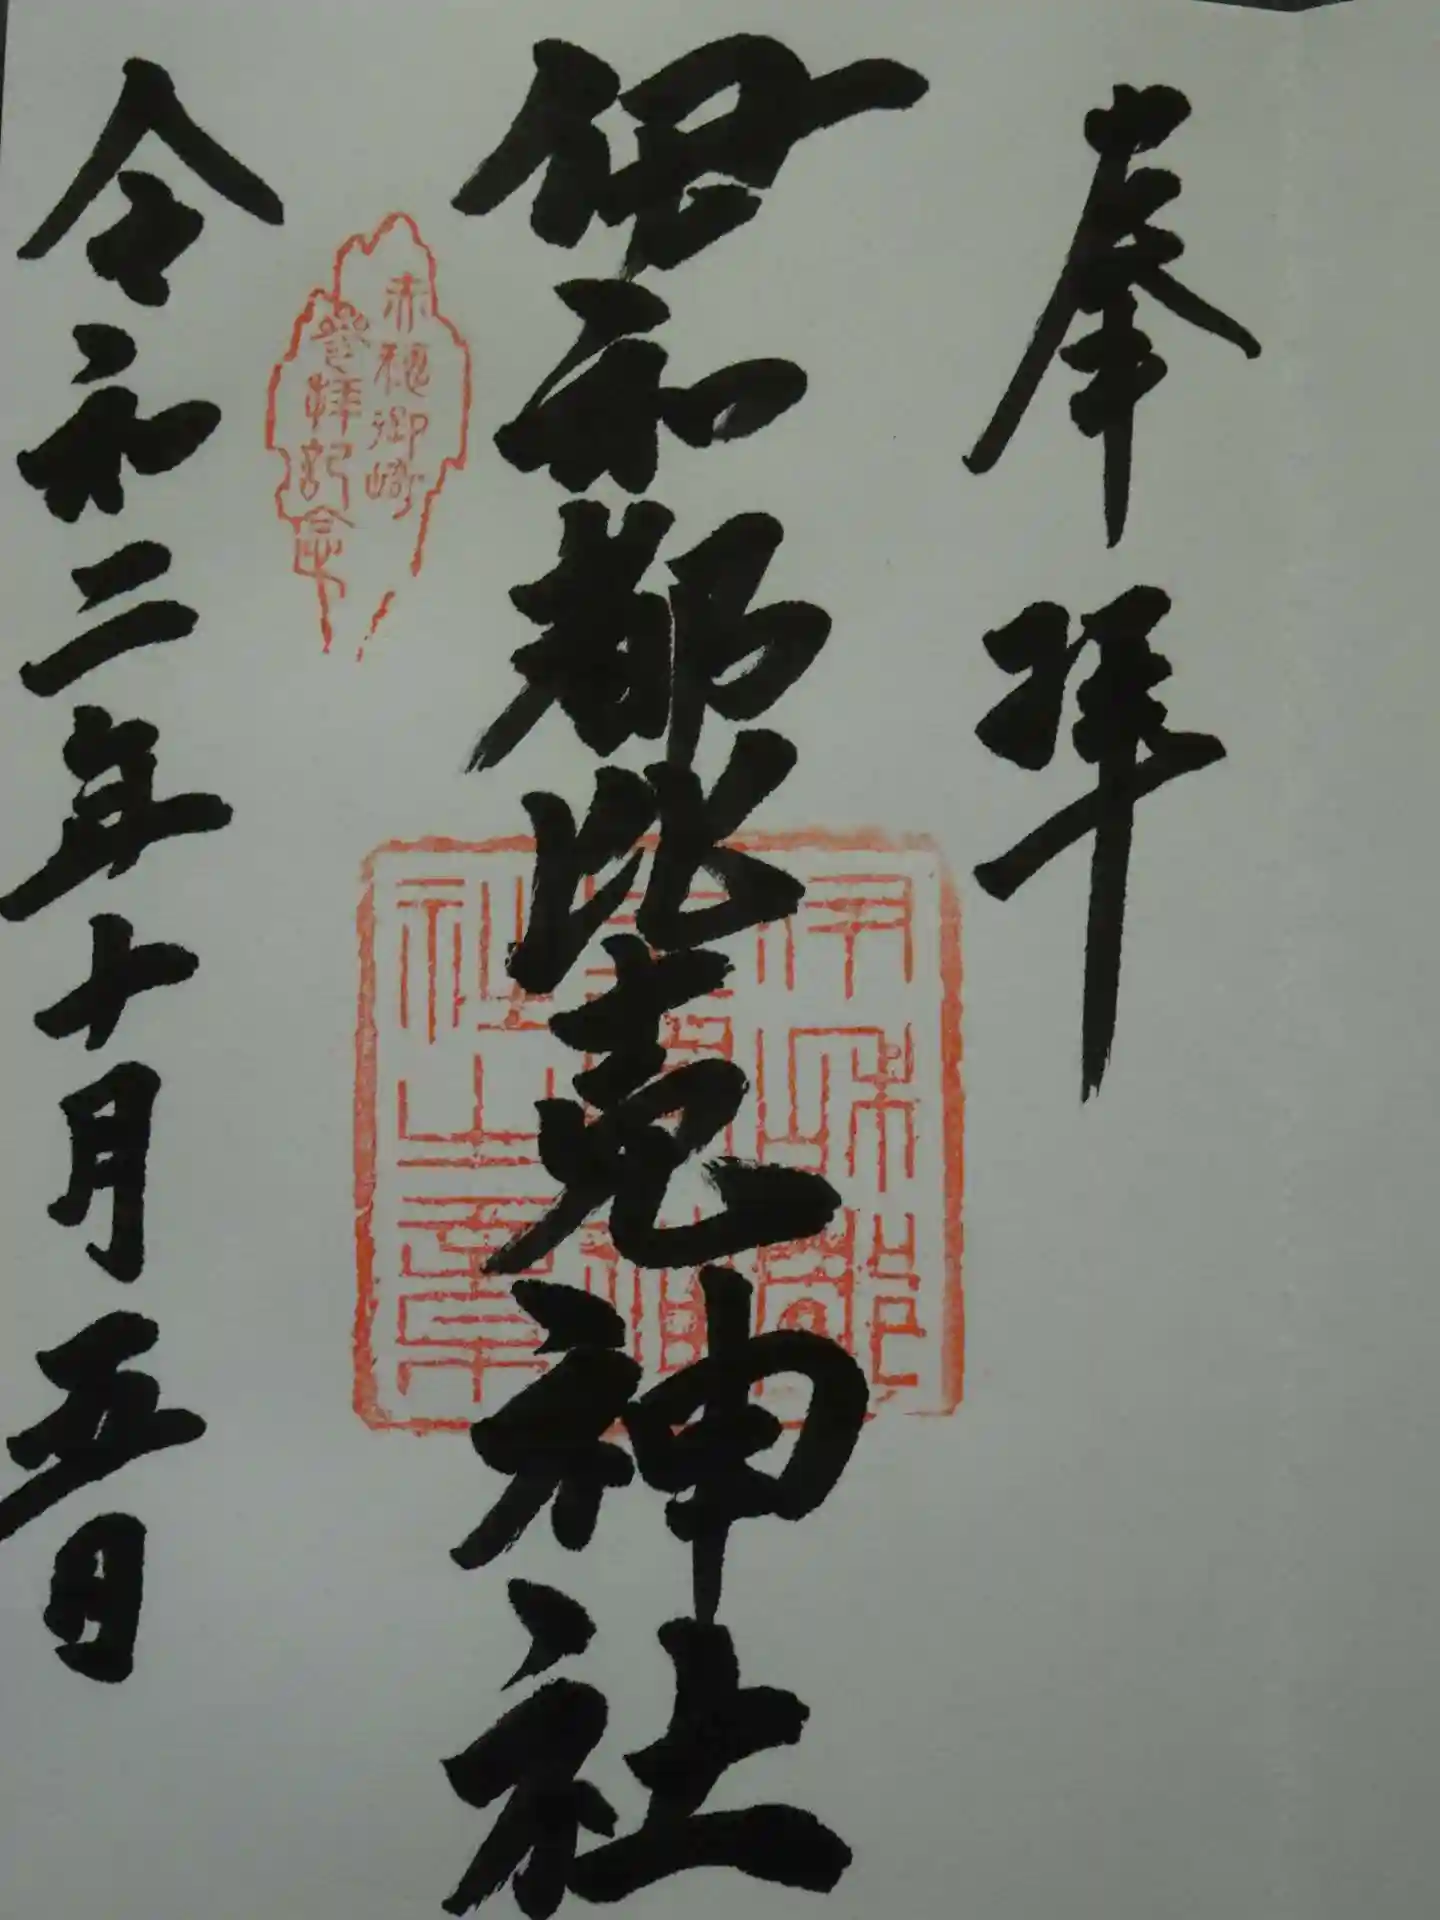 奉拝
伊和都比売神社
赤穂御崎
参拝記念
伊和都
比売神
社之章
令和二年十月五日